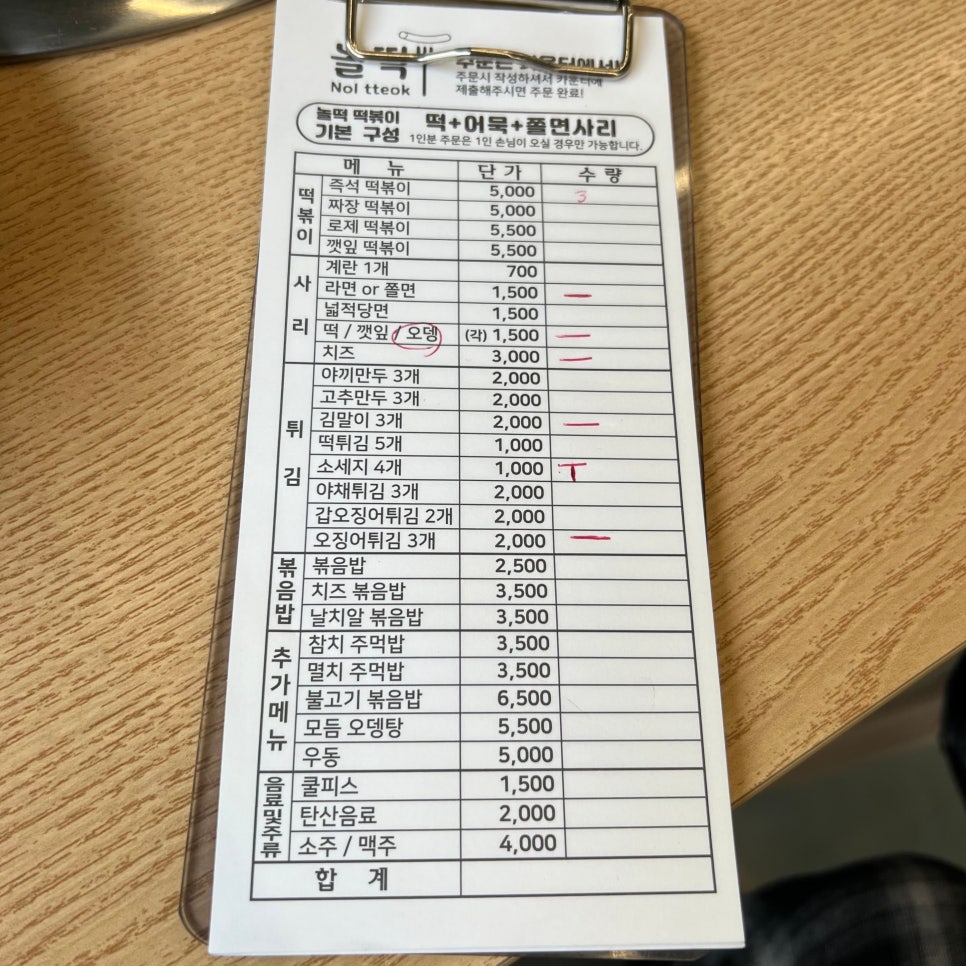 놀떡
Nol tteok
주문시 작성하셔서 카운터에
제출해주시면 주문 완료!
놀떡 떡볶이
기본 구성
떡+어묵+쫄면사리
1인분 주문은 1인 손님이 오실 경우만 가능합니다.
메 뉴 단 가 수 량
떡볶이
즉석 떡볶이 5,000 3
짜장 떡볶이 5,000
로제 떡볶이 5,500
깻잎 떡볶이 5,500
사리
계란 1개 700
라면 or 쫄면 1,500 一
넓적당면 1,500
떡 / 깻잎 / 오뎅 (각) 1,500 一
치즈 3,000 一
튀김
야끼만두 3개 2,000
고추만두 3개 2,000
김말이 3개 2,000 一
떡튀김 5개 1,000
소세지 4개 1,000 T
야채튀김 3개 2,000
갑오징어튀김 2개 2,000
오징어튀김 3개 2,000 一
볶음밥
볶음밥 2,500
치즈 볶음밥 3,500
날치알 볶음밥 3,500
추가메뉴
참치 주먹밥 3,500
멸치 주먹밥 3,500
불고기 볶음밥 6,500
모듬 오뎅탕 5,500
우동 5,000
음료및주류
쿨피스 1,500
탄산음료 2,000
소주 / 맥주 4,000
합 계